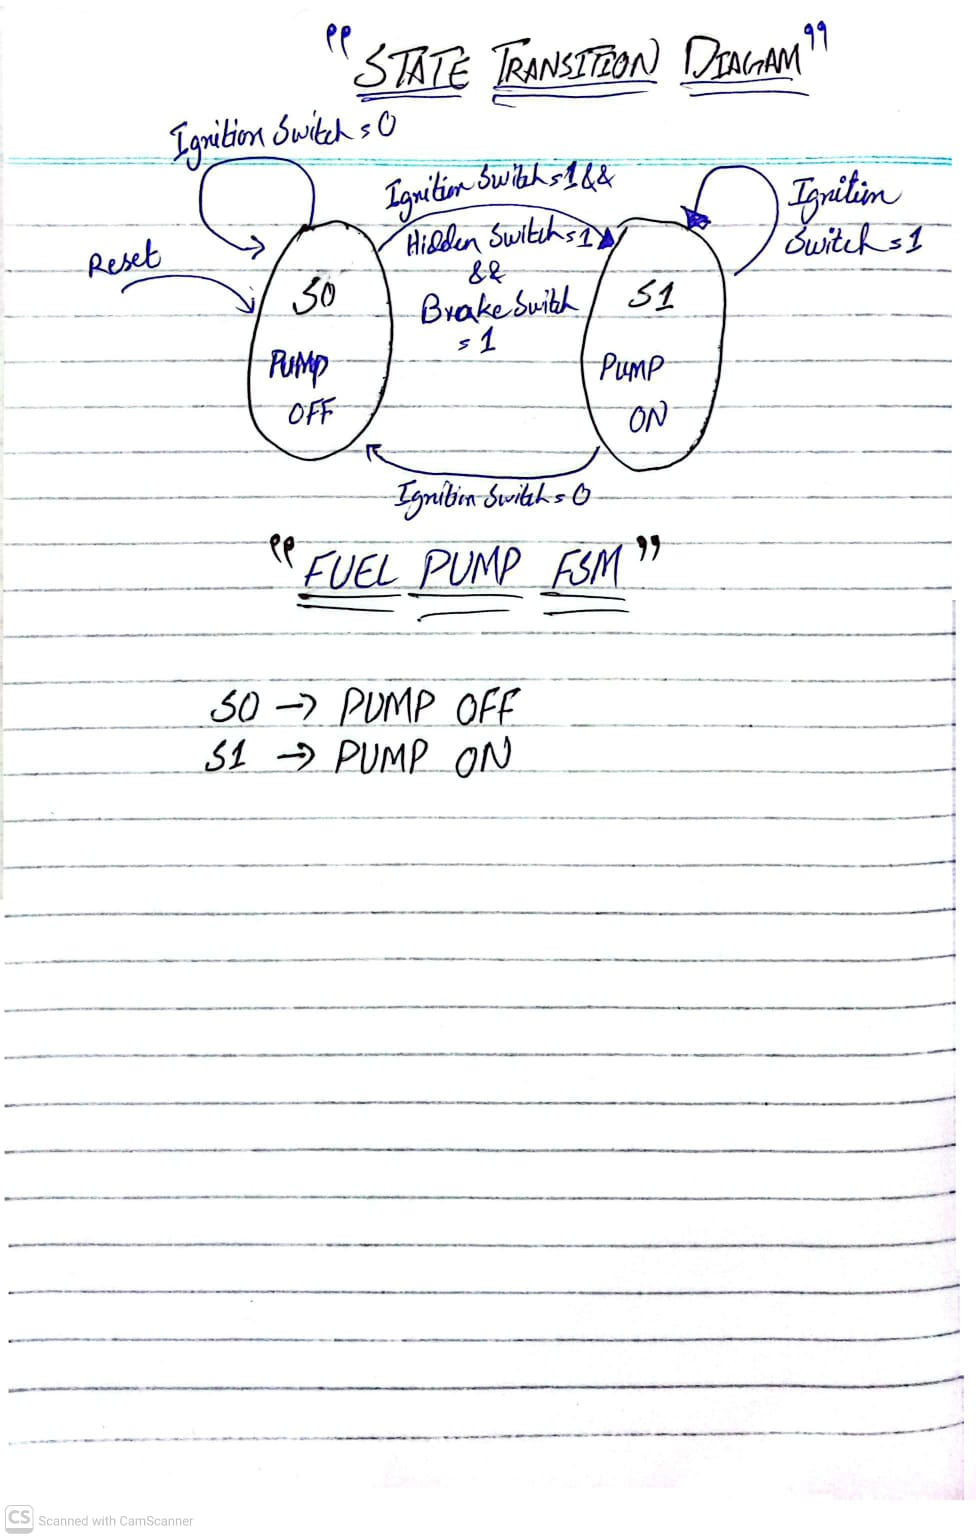 "STATE TRANSITION DIAGAM"
Ignition Switch = 0
Ignition Switch = 1 &&
Hidden Switch = 1
&&
Brake Switch
= 1
Ignition
Switch = 1
Reset
S0
PUMP
OFF
S1
PUMP
ON
Ignition Switch = 0
"FUEL PUMP FSM"
S0 → PUMP OFF
S1 → PUMP ON
CS Scanned with CamScanner